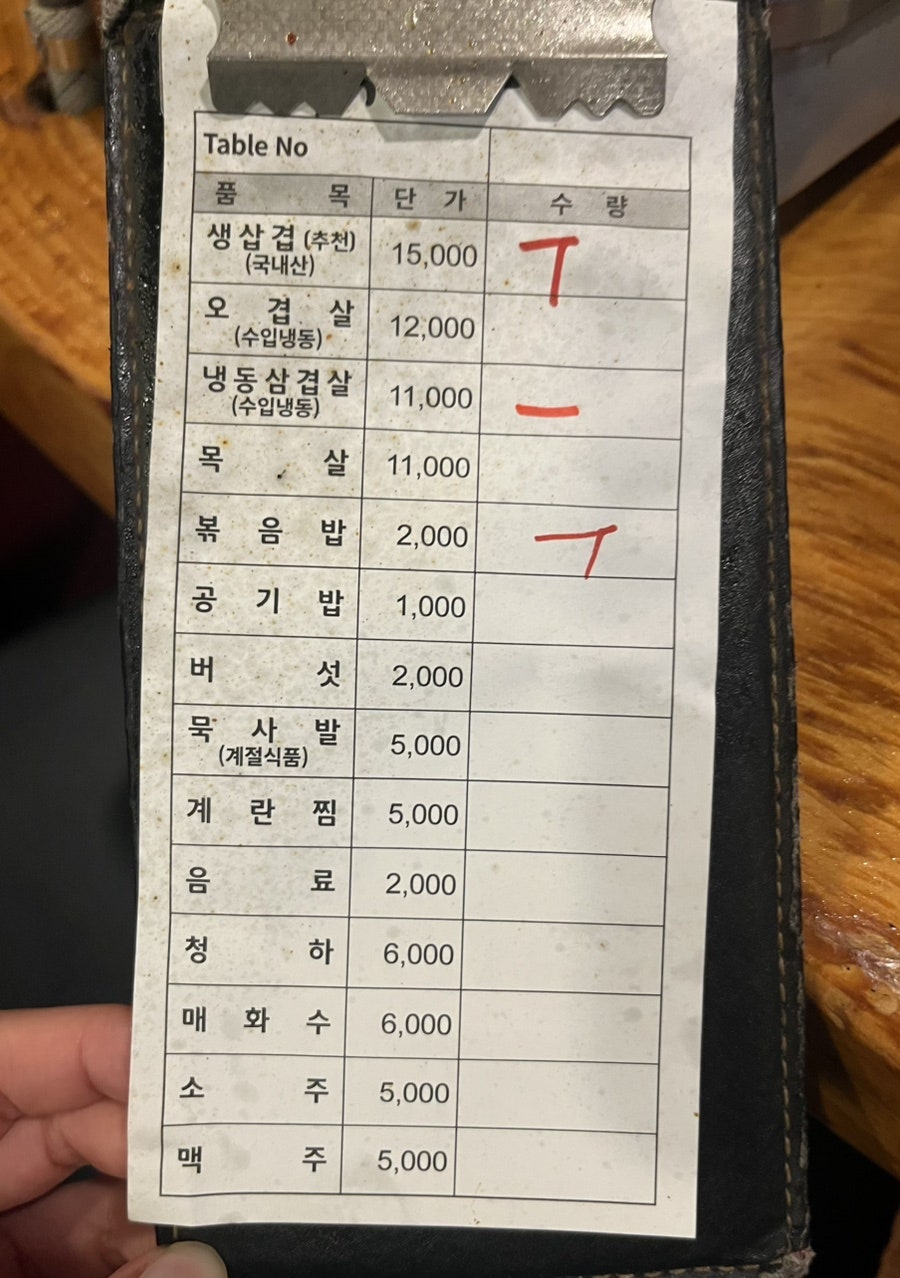 Table No
품 목 단 가 수 량
생삼겹 (추천) 15,000 ㅜ
(국내산)
오 겹 살 12,000
(수입냉동)
냉동삼겹살 11,000 ㅡ
(수입냉동)
목 살 11,000
볶 음 밥 2,000 ㅜ
공 기 밥 1,000
버 섯 2,000
묵 사 발 5,000
(계절식품)
계 란 찜 5,000
음 료 2,000
청 하 6,000
매 화 수 6,000
소 주 5,000
맥 주 5,000